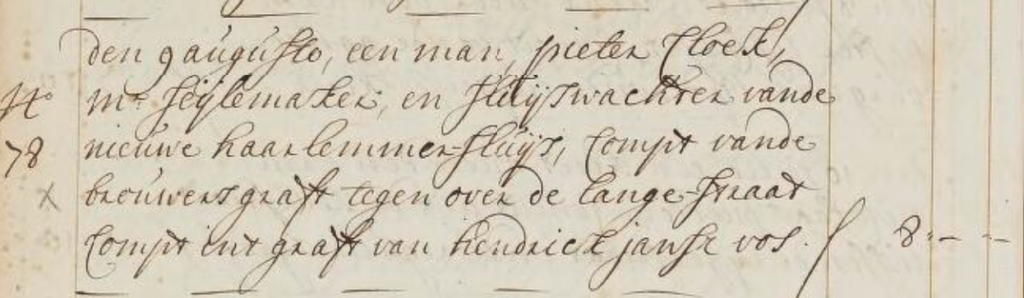 den 9 augusto, een man, pieter Cloek,
No mr. seijlemaker, en sluijswachter vande
78 nieuwe haarlemmer-sluijs, Compt vande
x brouwersgraft tegen over de lange-straat
Compt int graft van hendrick janse vos. ſ 8:--  --